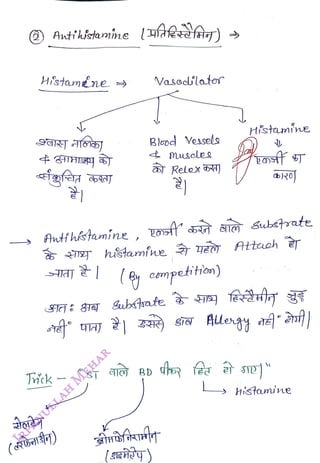 ② Antihistamine (प्रतिहिस्टैमिन) →
Histamine → Vasodilator
श्वास नलिका
& आमाशय को
संकुचित करता
है।
Blood Vessels
& Muscles
को Relex करता
है।
Histamine
↓
एलर्जी का
कारण
→ Antihistamine, एलर्जी करने वाले Substrate
के साथ histamine से पहले Attach हो
जाता है। (By competition)
अतः अब Substrate के साथ हिस्टैमीन जुड़
नहीं पाता है। इससे अब Allergy नहीं होगी।
Trick - "डा वाले BD पीकर हिट हो गए।"
→ Histamine
सेलडेन
(टरफेनाडीन)
ब्रोमफेनिरामीन
(डाइमेटेप)